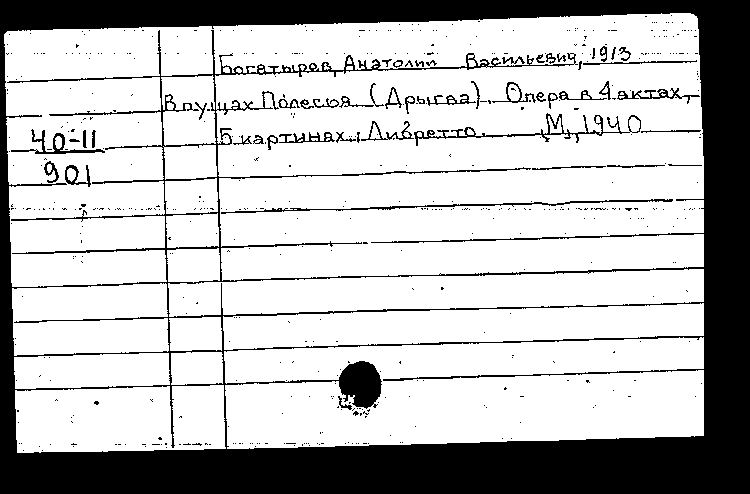 Богатырев, Анатолий Васильевич, 1913
В пущах Полесья (Дрыгва). Опера в 4 актах,
5 картинах. Либретто. М., 1940
40-11
901